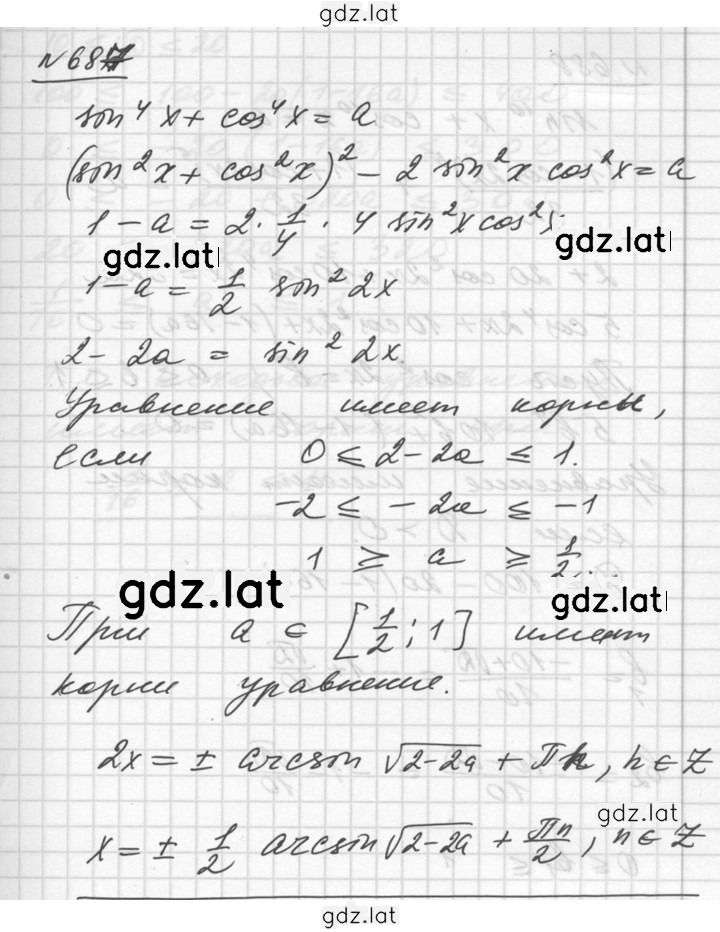 gdz.lat
№687
sin⁴x + cos⁴x = a
(sin²x + cos²x)² - 2 sin²x cos²x = a
1 - a = 2 · 1/4 · 4 sin²x cos²x
gdz.lat
gdz.lat
1 - a = 1/2 sin²2x
2 - 2a = sin²2x.
Уравнение имеет корни,
если 0 ≤ 2 - 2a ≤ 1.
-2 ≤ -2a ≤ -1
1 ≥ a ≥ 1/2.
gdz.lat
gdz.lat
При a ∈ [1/2; 1] имеет
корни уравнение.
2x = ± arcsin √(2-2a) + Пn, n ∈ Z
gdz.lat
x = ± 1/2 arcsin √(2-2a) + Пn/2, n ∈ Z
gdz.lat